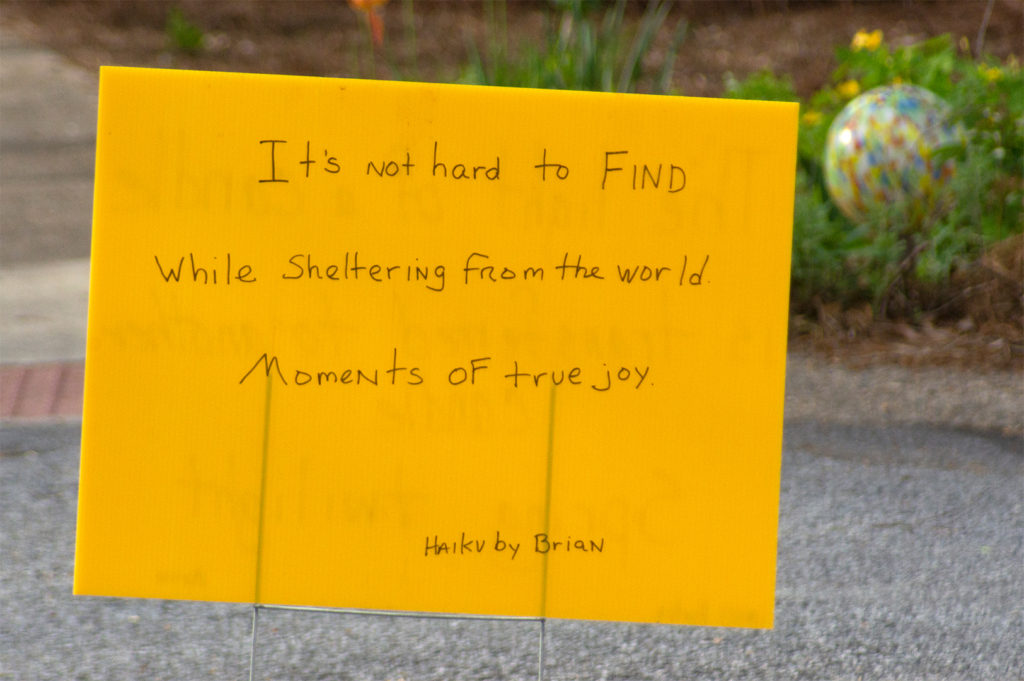 It's not hard to FIND
While Sheltering from the world.
Moments of true joy.
Haiku by Brian